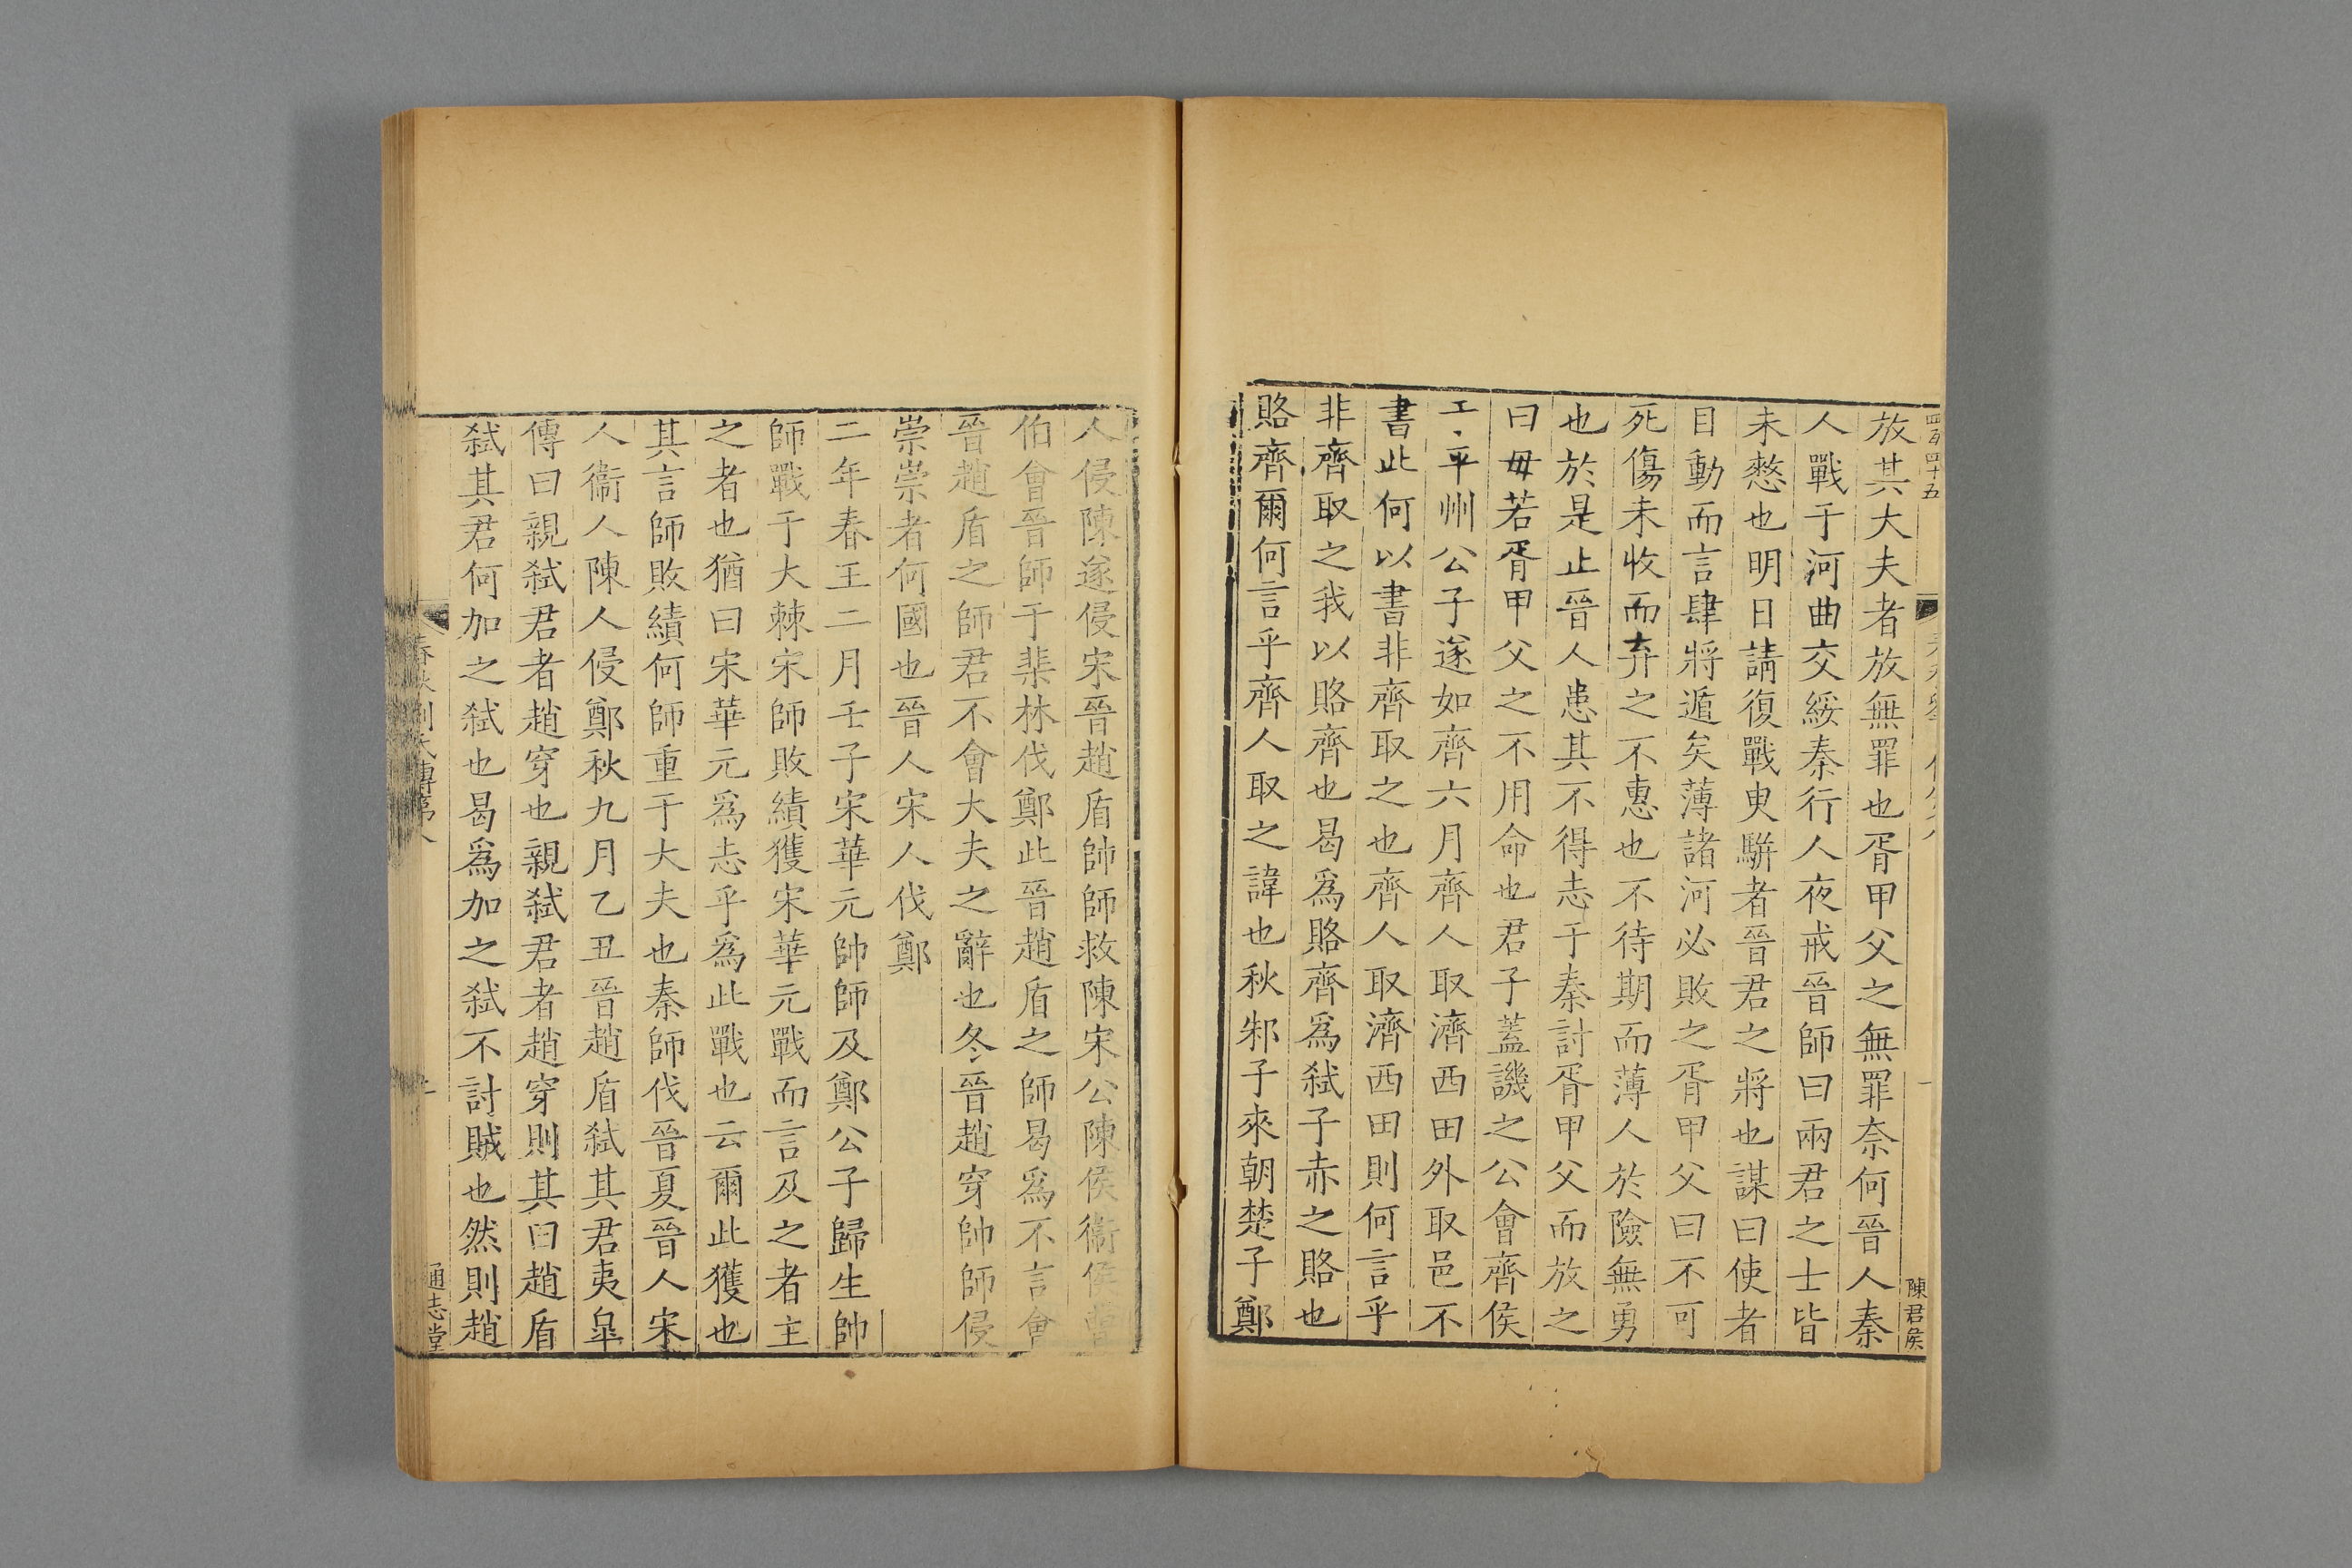 四百四十五
陳君侯
放其大夫者放無罪也胥甲父之無罪奈何晉人秦
人戰于河曲交綏秦行人夜戒晉師曰兩君之士皆
未憗也明日請復戰臾駢者晉君之將也謀曰使者
目動而言肆將遁矣薄諸河必敗之胥甲父曰不可
死傷未收而弃之不惠也不待期而薄人於險無勇
也於是止晉人患其不得志于秦討胥甲父而放之
曰毋若胥甲父之不用命也君子蓋譏之公會齊侯
于平州公子遂如齊六月齊人取濟西田外取邑不
書此何以書非齊取之也齊人取濟西田則何言乎
非齊取之我以賂齊也曷爲賂齊爲弑子赤之賂也
賂齊爾何言乎齊人取之諱也秋邾子來朝楚子鄭
人侵陳遂侵宋晉趙盾帥師救陳宋公陳侯衞侯曹
伯會晉師于棐林伐鄭此晉趙盾之師曷爲不言會
晉趙盾之師君不會大夫之辭也冬晉趙穿帥師侵
崇崇者何國也晉人宋人伐鄭
二年春王二月壬子宋華元帥師及鄭公子歸生帥
師戰于大棘宋師敗績獲宋華元戰而言及之者主
之者也猶曰宋華元爲志乎爲此戰也云爾此獲也
其言師敗績何師重于大夫也秦師伐晉夏晉人宋
人衞人陳人侵鄭秋九月乙丑晉趙盾弑其君夷皐
傳曰親弑君者趙穿也親弑君者趙穿則其曰趙盾
弑其君何加之弑也曷爲加之弑不討賊也然則趙
春秋劉氏傳第八
通志堂